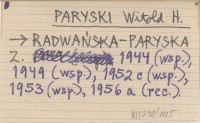 PARYSKI Witold H.
→ RADWAŃSKA-PARYSKA
Z. 1944 (wsp.),
1949 (wsp.), 1952 c (wsp.),
1953 (wsp.), 1956 a (rec.).